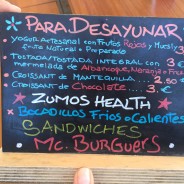 PARA DESAYUNAR
YOGUR ARTESANAL con FRUTOS ROJOS y Muesli
fruta Natural o Preparado 3
TOSTADA/TOSTADA INTEGRAL con 3
mermelada de Albaricoque, Naranja o Fru
CROISSANT de MANTEQUILLA 2.50
CROISSANT de Chocolate 3. €
ZUMOS HEALTH
BOCADILLOS Fríos o Calientes
SANDWICHES
Mc. BURGUERS